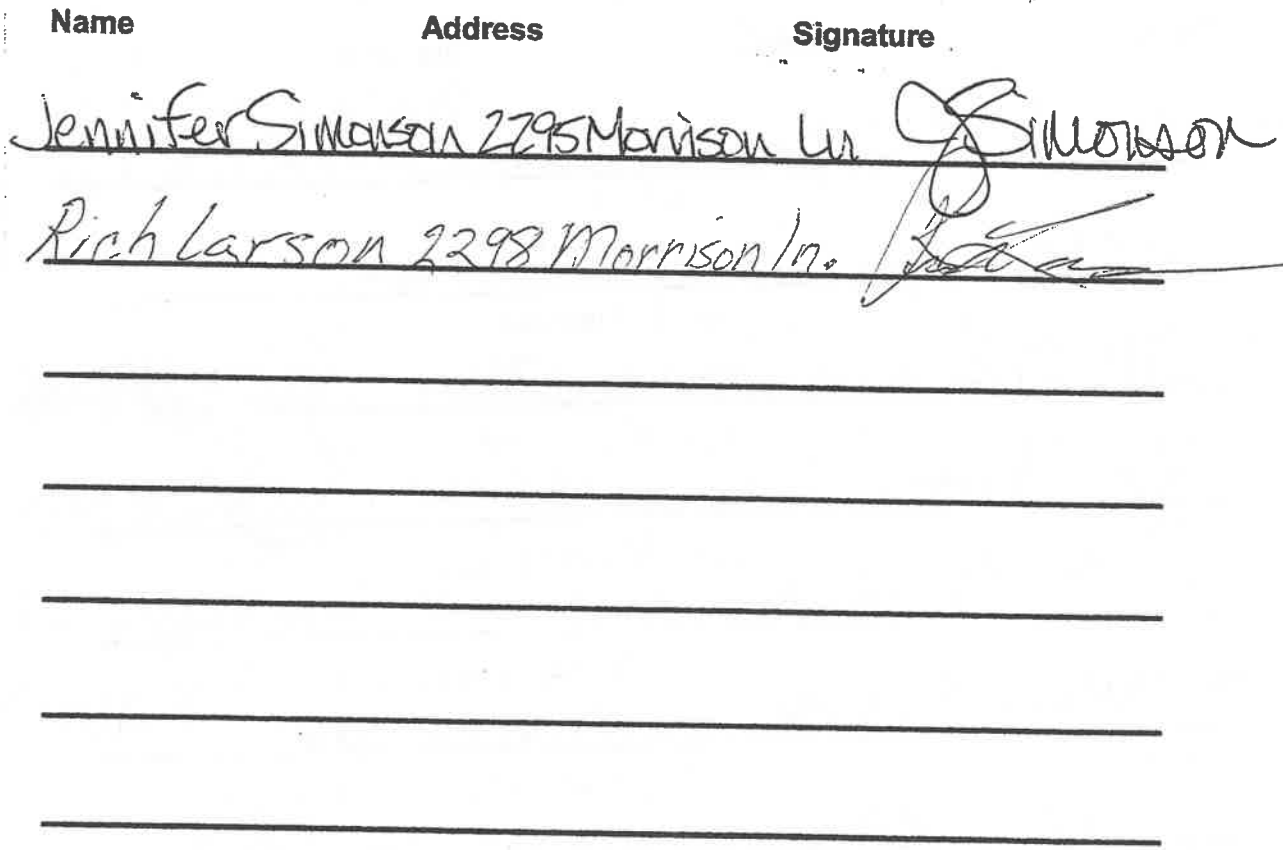 Name Address Signature
Jennifer Simonson 2295 Morrison Ln JSimonson
Rich Larson 2298 Morrison ln.